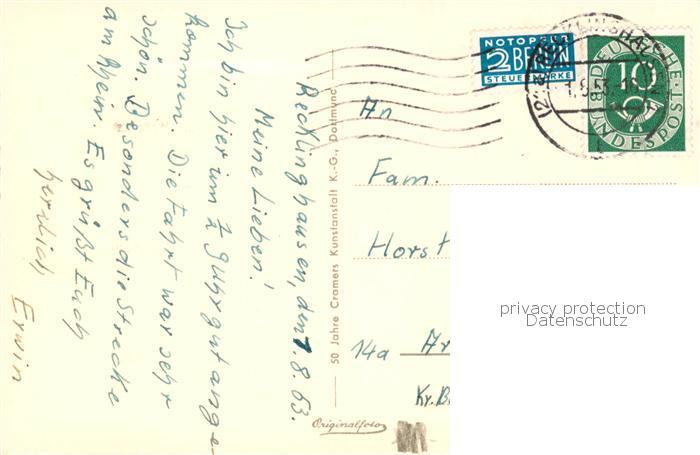 Recklinghausen, den 1.8.53.
Meine Lieben!
Ich bin hier um Uhr gut ange
kommen. Die Fahrt war sehr
schön. Besonders die Strecke
am Rhein. Es grüßt Euch
herzlich
Erwin
50 Jahre Cramers Kunstanstalt K.-G., Dortmund
Originalfoto
NOTOPFER
2 BERLIN
STEUERMARKE
DEUTSCHE
10
BUNDESPOST
An
Fam.
Horst
14a
Kr.
privacy protection
Datenschutz